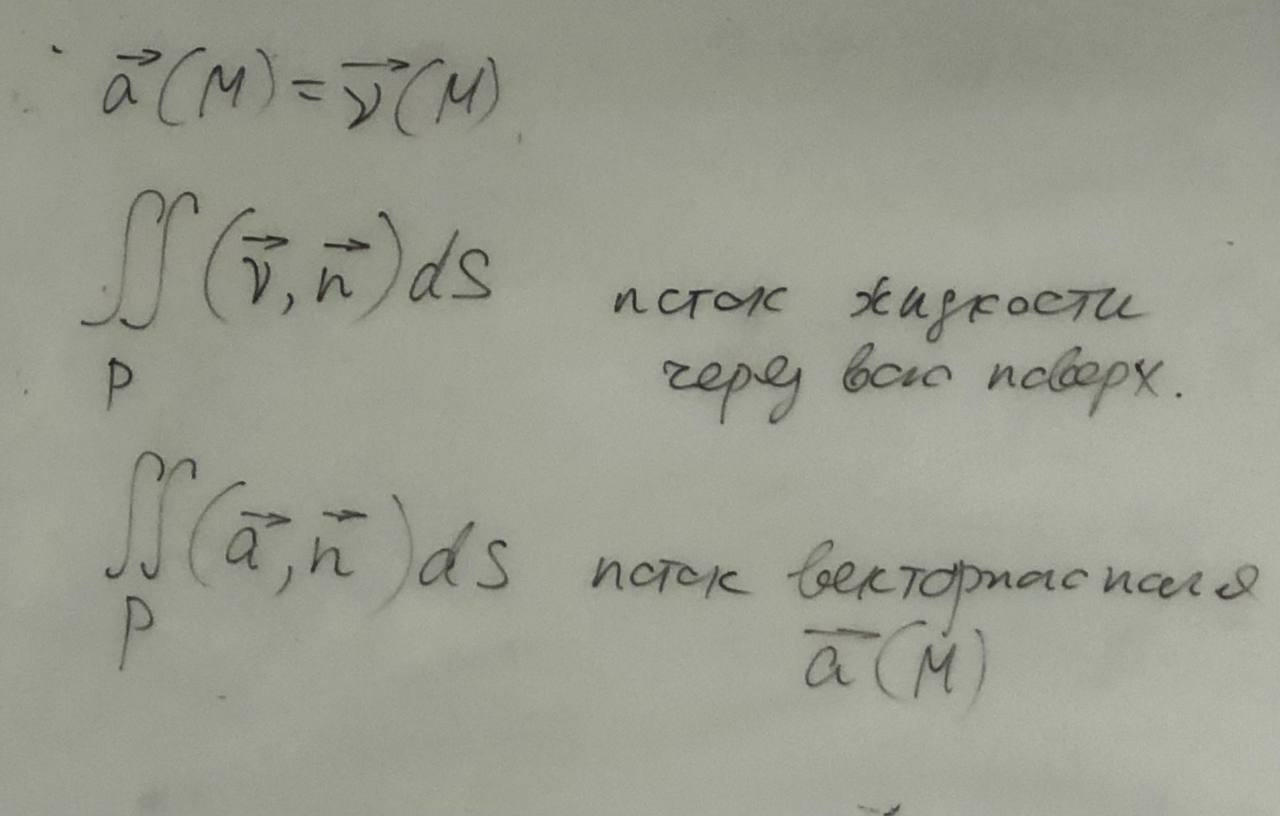 a⃗(M) = v⃗(M)
∬ (v⃗, n⃗) dS поток жидкости
P через всю поверх.
∬ (a⃗, n⃗) dS поток векторного поля
P a⃗(M)